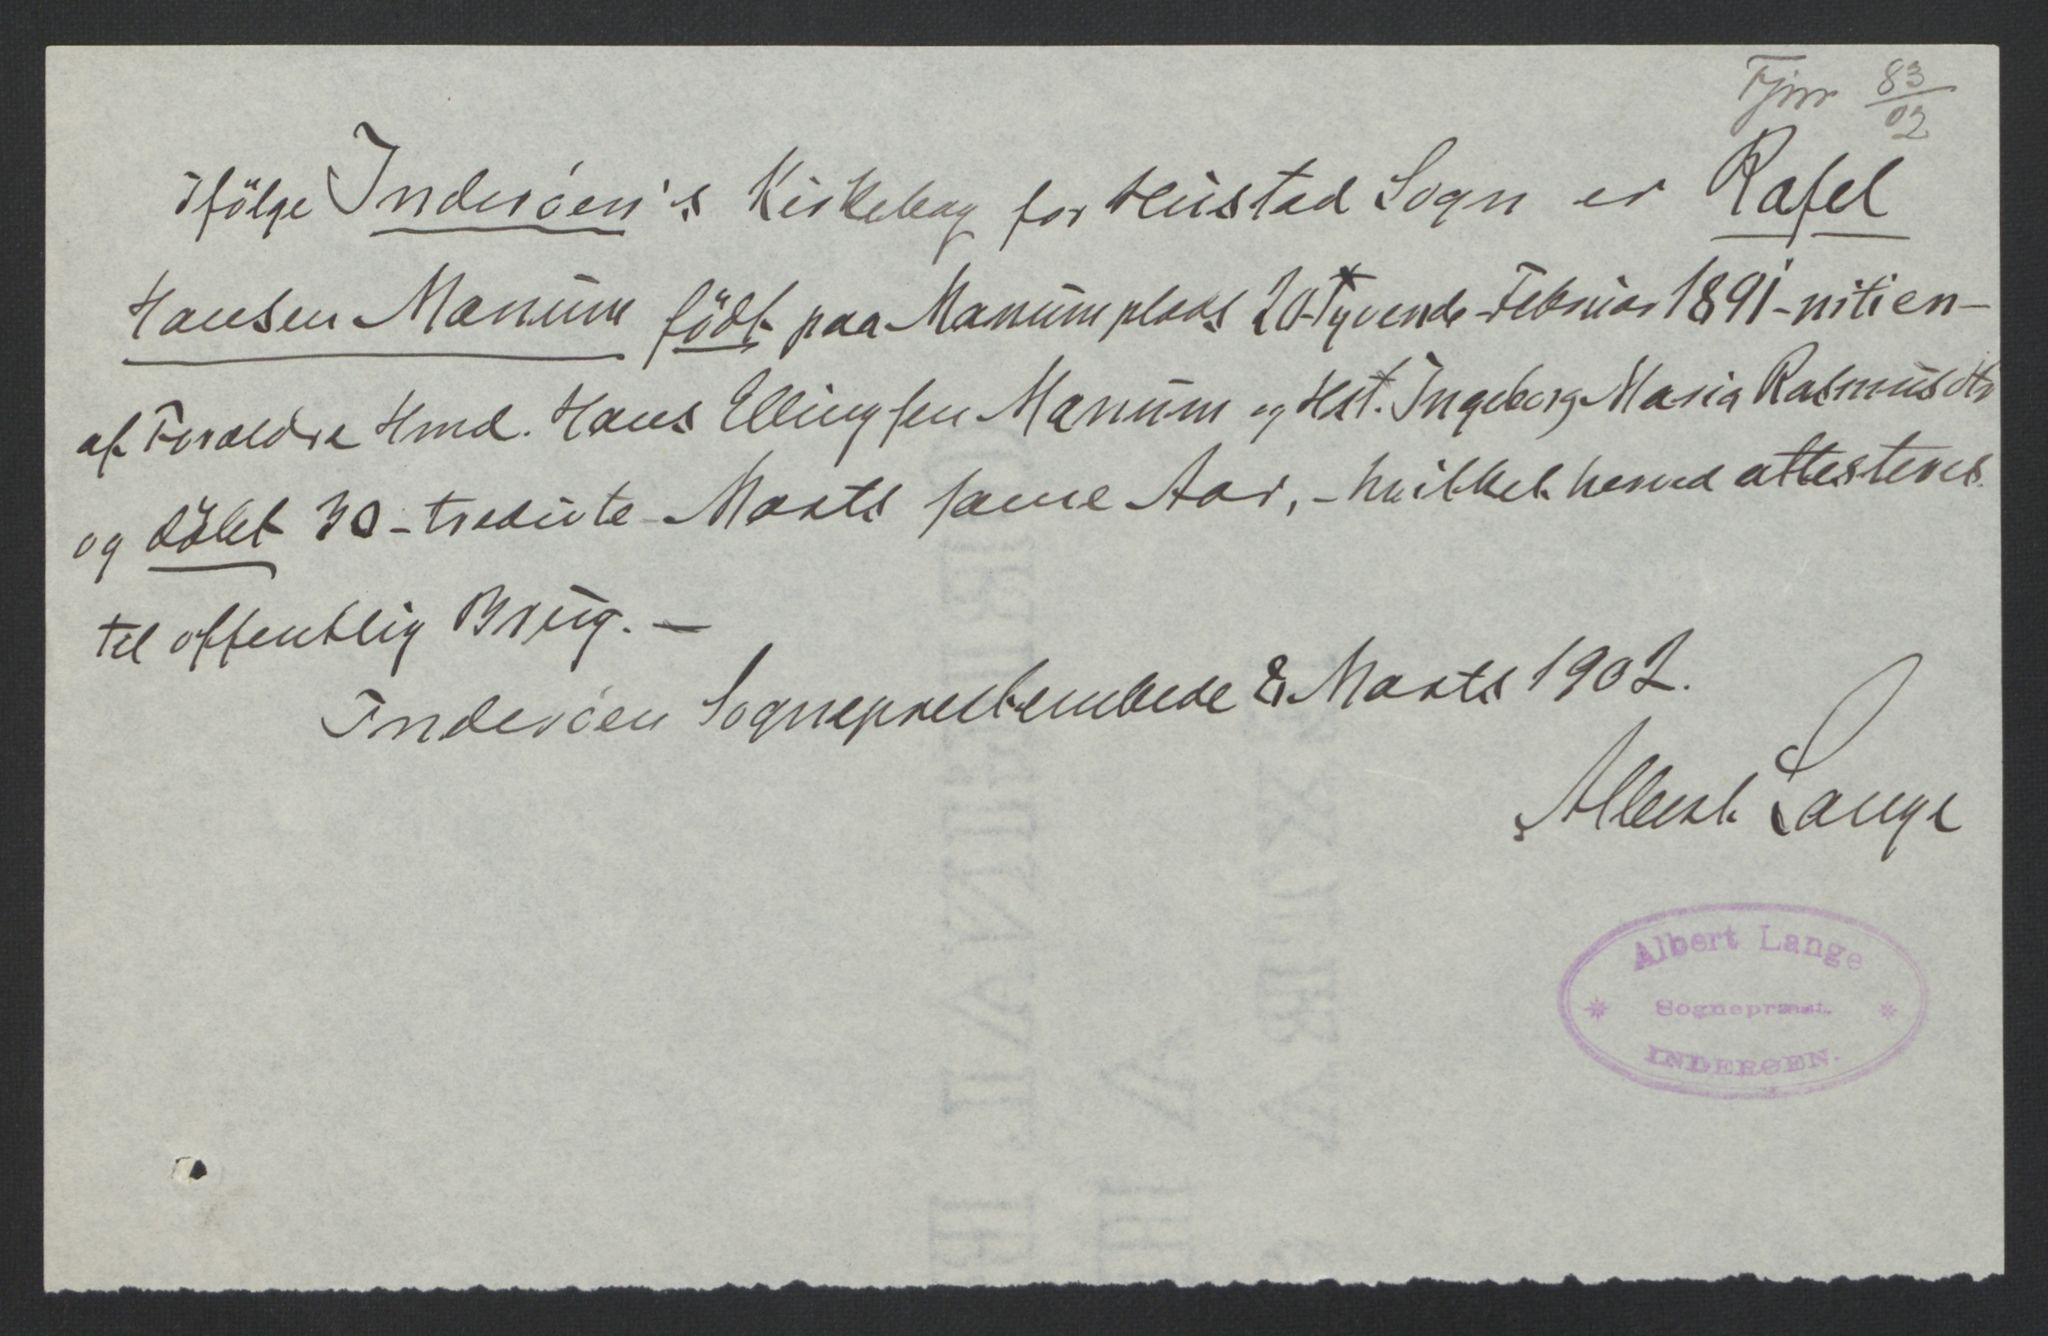 Fjnr 83/02
Ifölge Inderöen's Kirkebog for Hustad Sogn er Rafel
Hansen Manum födt paa Manumplads 20-Tyvende-Februar 1891-nitien-
af Forældre Hmd. Hans Ellingsen Manum og Hst. Ingeborg Maria Rasmusdtr
og döbt 30-tredivte-Marts same Aar, - hvilket herved attesteres
til offentlig Brug. —
Inderöen Sogneprestembede 8 Marts 1902.
Albert Lange
Albert Lange
Sognepræst.
INDERØEN.